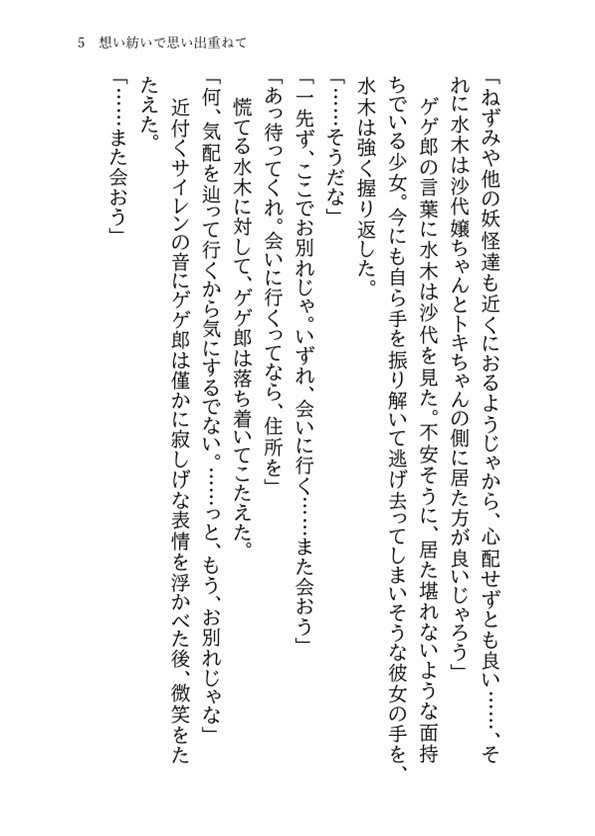 5 想い紡いで思い出重ねて
「ねずみや他の妖怪達も近くにおるようじゃから、心配せずとも良い……、そ
れに水木は沙代嬢ちゃんとトキちゃんの側に居た方が良いじゃろう」
ゲゲ郎の言葉に水木は沙代を見た。不安そうに、居た堪れないような面持
ちでいる少女。今にも自ら手を振り解いて逃げ去ってしまいそうな彼女の手を、
水木は強く握り返した。
「……そうだな」
「一先ず、ここでお別れじゃ。いずれ、会いに行く……また会おう」
「あっ待ってくれ。会いに行くってなら、住所を」
慌てる水木に対して、ゲゲ郎は落ち着いてこたえた。
「何、気配を辿って行くから気にするでない。……っと、もう、お別れじゃな」
近付くサイレンの音にゲゲ郎は僅かに寂しげな表情を浮かべた後、微笑をた
たえた。
「……また会おう」